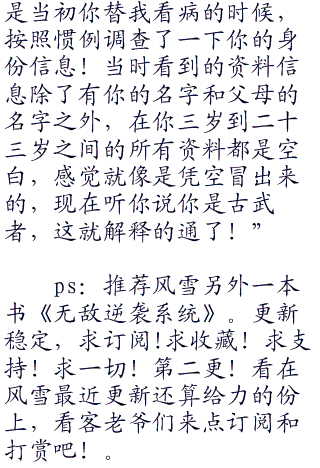 是当初你替我看病的时候，
按照惯例调查了一下你的身
份信息！当时看到的资料信
息除了有你的名字和父母的
名字之外，在你三岁到二十
三岁之间的所有资料都是空
白，感觉就像是凭空冒出来
的，现在听你说你是古武
者，这就解释的通了！”
ps：推荐风雪另外一本
书《无敌逆袭系统》。更新
稳定，求订阅!求收藏！求支
持！求一切！第二更！看在
风雪最近更新还算给力的份
上，看客老爷们来点订阅和
打赏吧！。